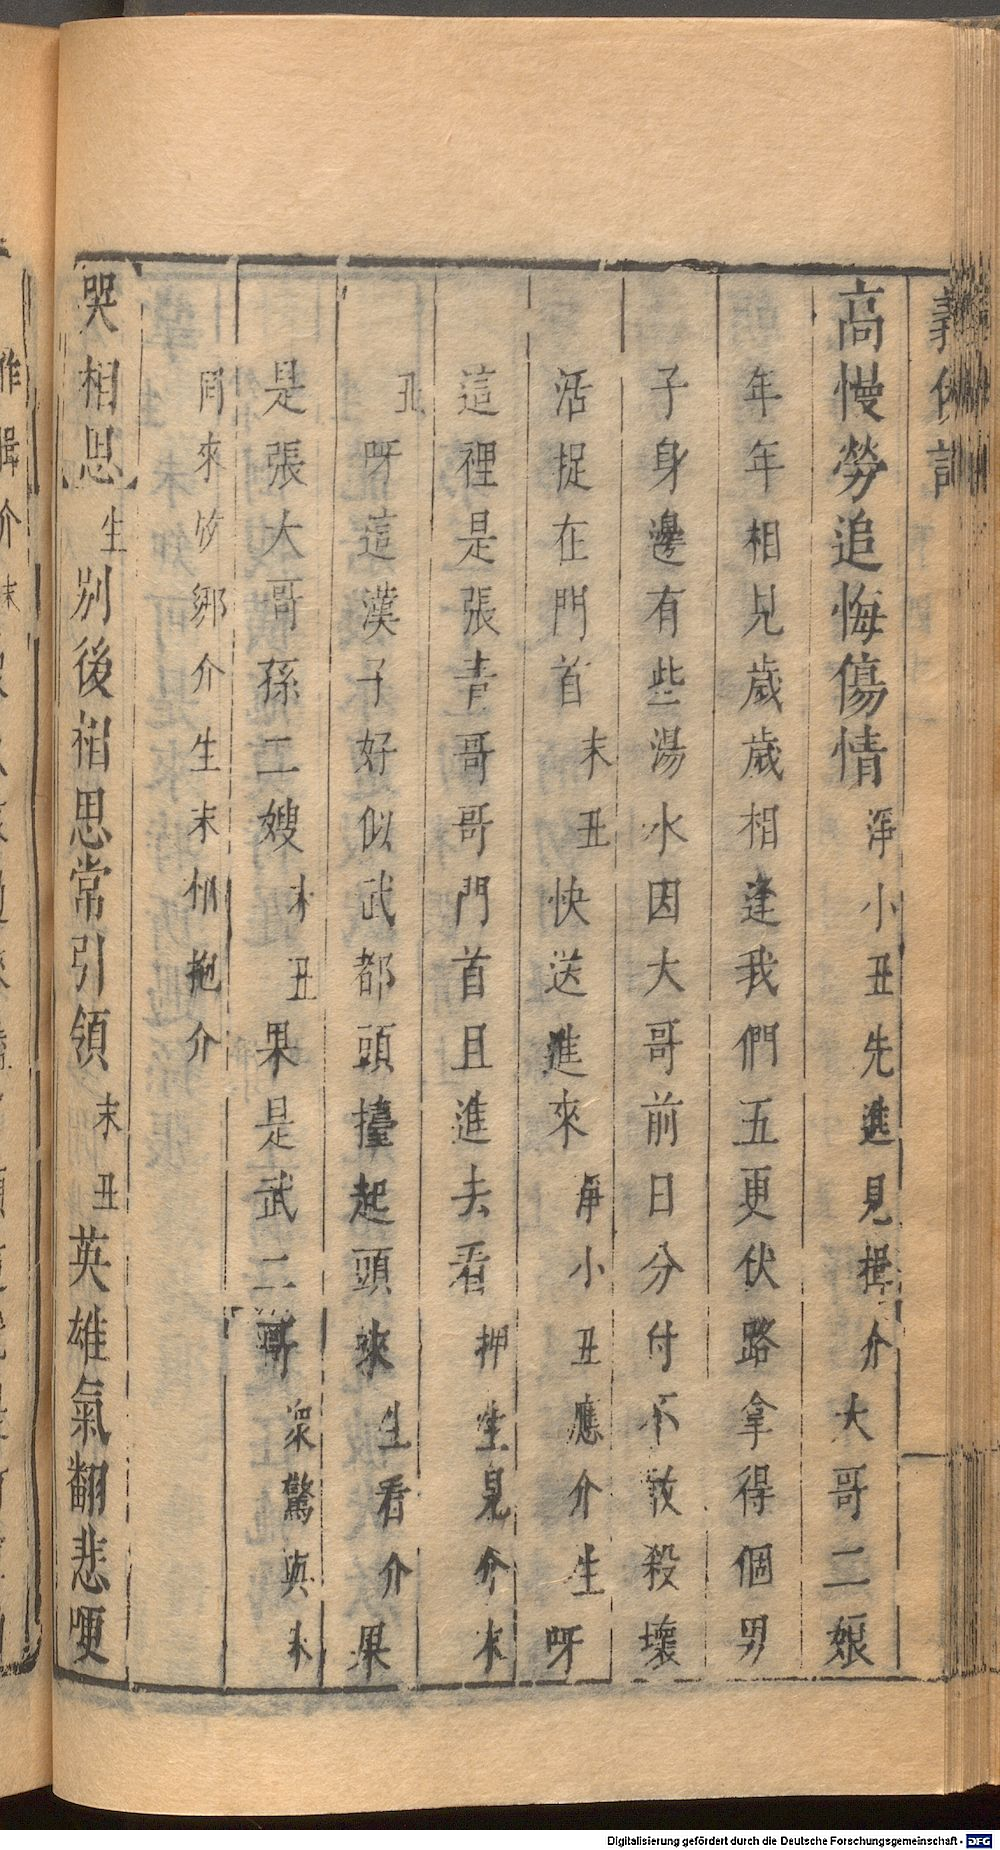 義俠記
高慢勞追悔傷情淨小丑先進見揖介大哥二娘
年年相見歲歲相逢我們五更伏路拿得個男
子身邊有些湯水因大哥前日分付不敢殺壞
活捉在門首末丑快送進來淨小丑應介生呀
這裡是張青哥哥門首且進去看押生見介末
丑呀這漢子好似武都頭擡起頭來生看介果
是張大哥孫二嫂末丑果是武二哥衆驚與末
同來放綁介生末相抱介
哭相思生別後相思常引領末丑英雄氣翻悲哽
作揖介末
Digitalisierung gefördert durch die Deutsche Forschungsgemeinschaft - DFG